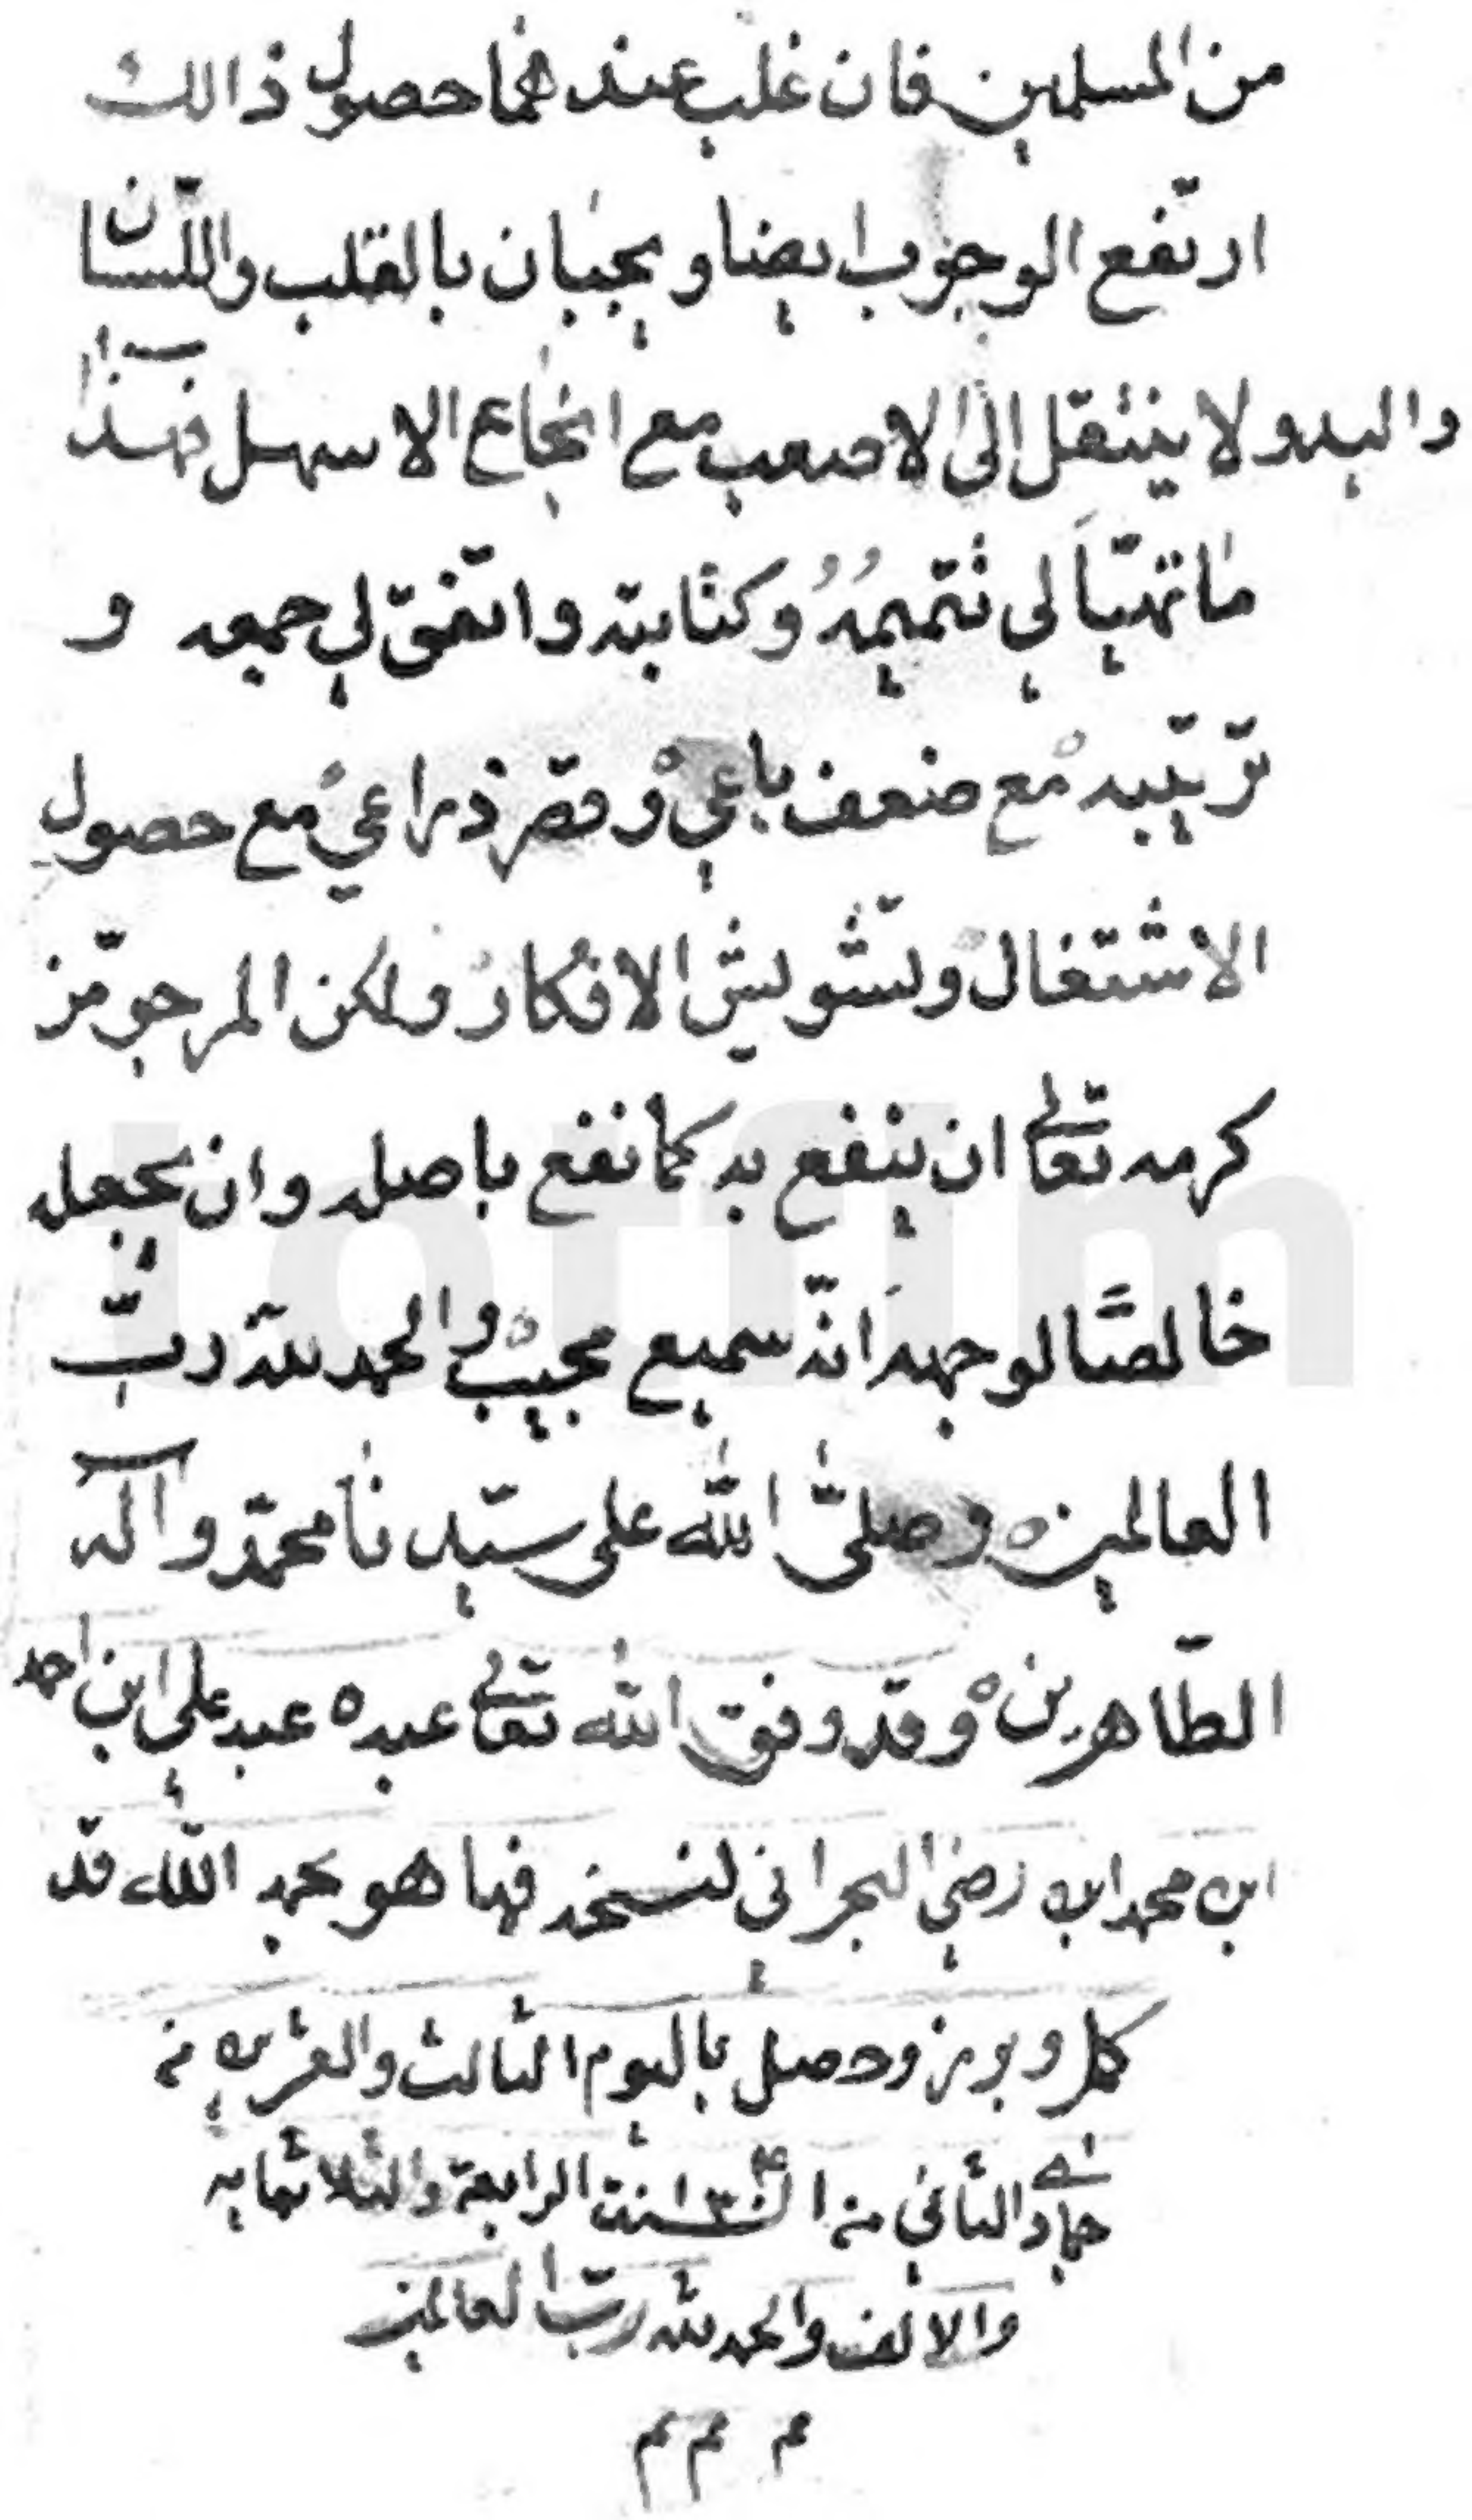 من المسلمين فان غلب عندهما حصول ذالك
ارتفع الوجوب ايضا ويجبان بالقلب واللسان
واليد ولا ينتقل الى الاصعب مع انجاع الاسهل فهذا
ما تهيأ لي تتميمه وكتابته واتفق لي جمعه و
ترتيبه مع ضعف باعي وقصر ذراعي مع حصول
الاشتغال وتشويش الافكار ولكن المرجو من
كرمه تعالى ان ينفع به كما نفع باصله وان يجعله
خالصًا لوجهه انّه سميع مجيب والحمد لله ربّ
العالمين وصلّى الله على سيّدنا محمّد وآله
الطّاهرين وقد وفق الله تعالى عبده عبد علي ابن احمد
ابن محمد ابن رضي البحراني لنسخه فها هو بحمد الله قد
كمل وبرز وحصل باليوم الثالث والعشرين من
جمادى الثاني من السنة الرابعة والثلاثمايه
والالف والحمد لله ربّ العالمين
م م م